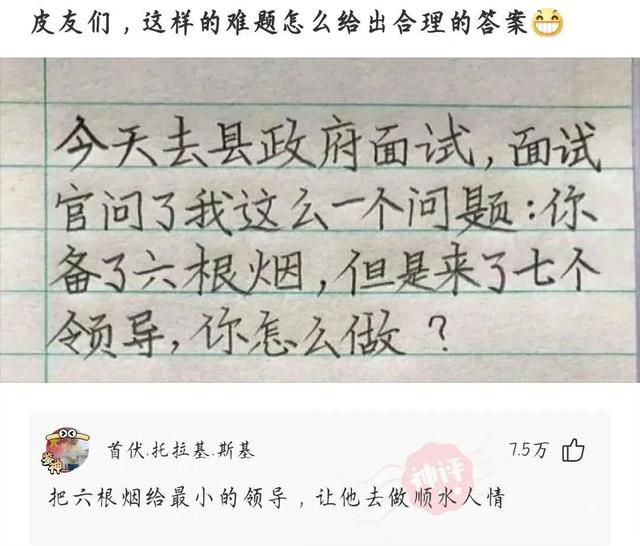 皮友们,这样的难题怎么给出合理的答案
今天去县政府面试,面试
官问了我这么一个问题:你
备了六根烟,但是来了七个
领导,你怎么做?
首伏.托拉基.斯基
7.5万
神评
把六根烟给最小的领导,让他去做顺水人情